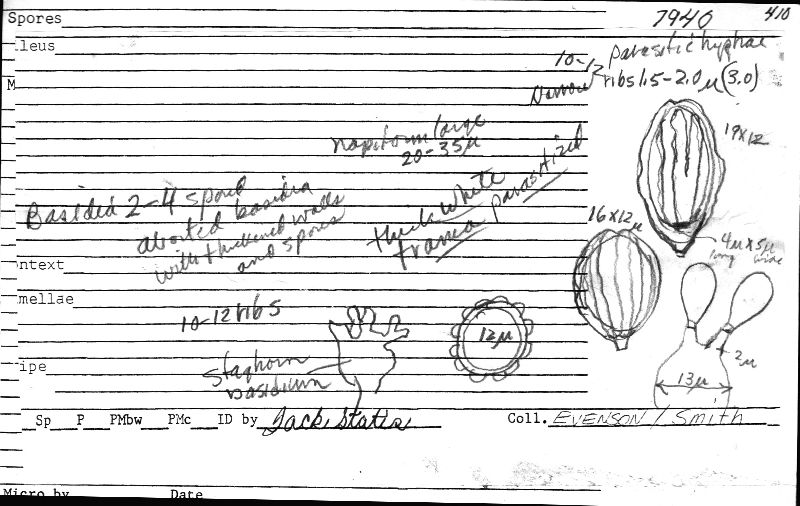 Spores
7940
410
leus
parasitic hyphae
10-12
M
Narrow ribs 1.5-2.0µ (3.0)
napiform large
20-35µ
19x12
Basidia 2-4 spored
aborted basidia
with thickened walls
and spores
thick white
trama parasitized
16x12µ
4µx5µ
long wide
ntext
mellae
10-12 ribs
12µ
2µ
ipe
Staghorn
basidium
13µ
Sp P PMbw PMc ID by Jack States
Coll. EVENSON / Smith
Micro by Date